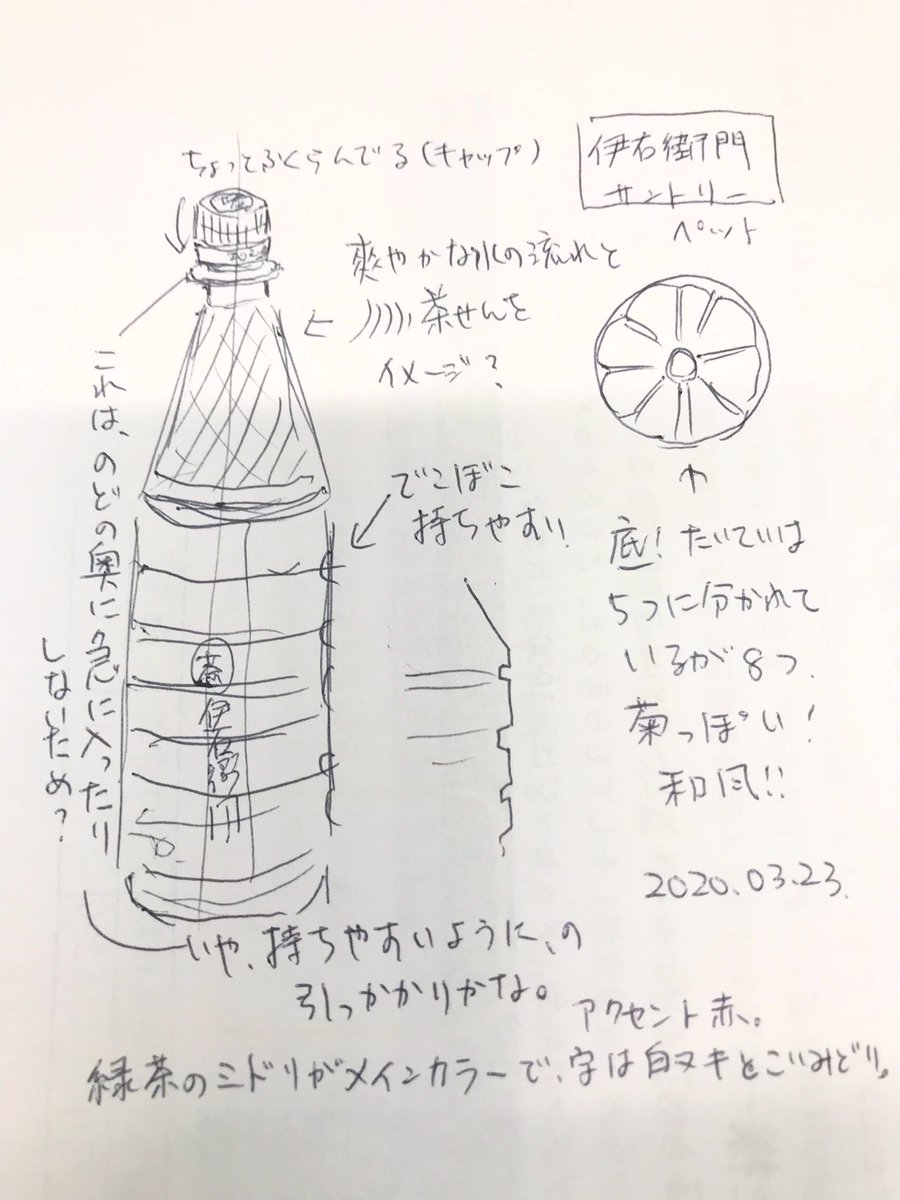 ちょっとふくらんでる(キャップ)
伊右衛門
サントリー
ペット
爽やかな水の流れと
茶せんを
イメージ?
これは、のどの奥に急に入ったり
しないため?
でこぼこ
持ちやすい!
底! たいていは
5つに分かれて
いるが8つ.
菊っぽい!
和風!!
茶
伊右衛門
2020.03.23.
いや、持ちやすいように、の
引っかかりかな。
アクセント赤。
緑茶のミドリがメインカラーで、字は白ヌキとこいみどり。